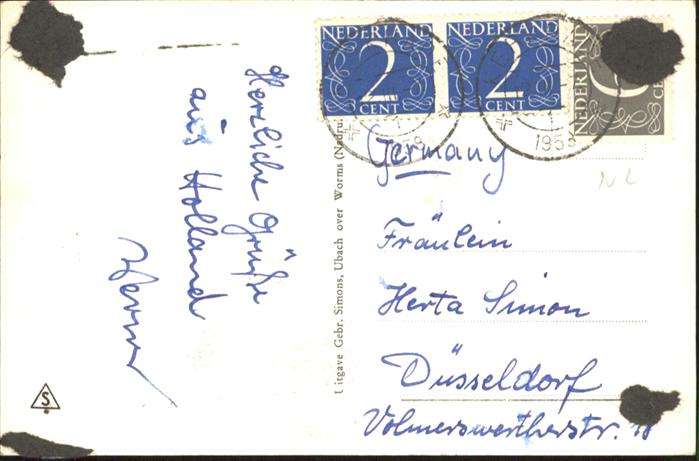 Herzliche Grüße
aus Holland
Werner
Uitgave Gebr. Simons, Ubach over Worms (Nadru
NEDERLAND
2
CENT
NEDERLAND
2
CENT
NEDERLAND
CE
1958
Germany
Fräulein
Herta Simon
Düsseldorf
Volmerswertherstr.
S